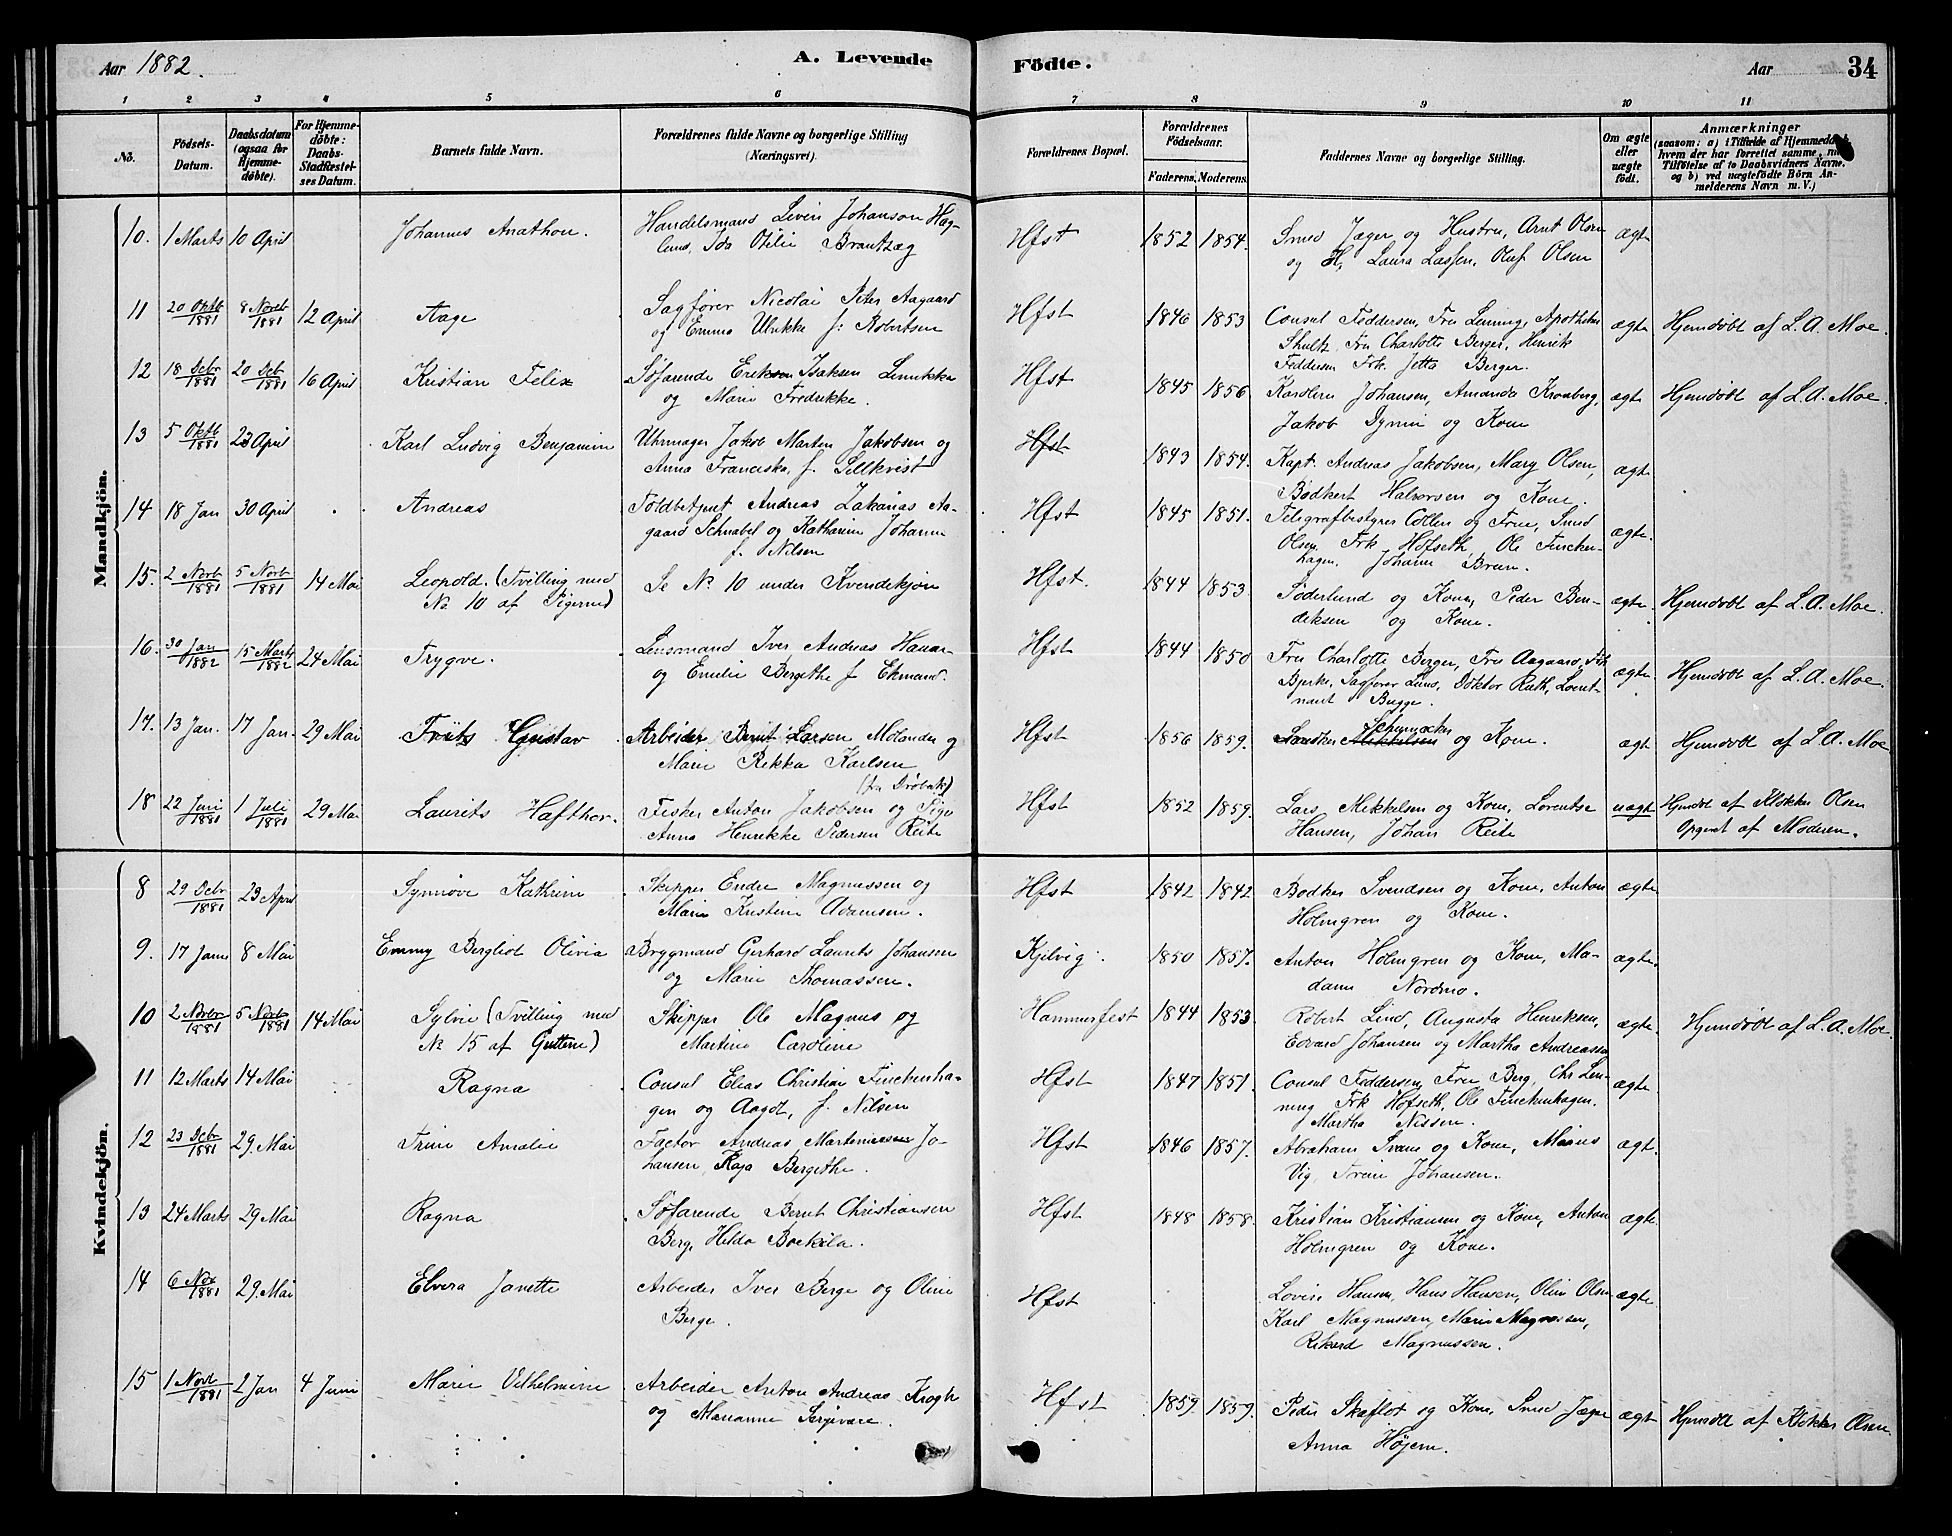 Aar 1882.
A. Levende
Födte.
Aar
34
1 2 3 4 5 6 7 8 9 10 11
No.
Födsels-Datum.
Daabsdatum (ogsaa for Hjemme-döbte).
For Hjemme-döbte: Daabs-Stadfæstel-ses Datum.
Barnets fulde Navn.
Forældrenes fulde Navne og borgerlige Stilling (Næringsvei).
Forældrenes Bopæl.
Forældrenes Födselsaar.
Faderens. Moderens.
Faddernes Navne og borgerlige Stilling.
Om ægte eller uægte födt.
Anmærkninger
Mandkjön.
10. 1 Marts 10 April Johannes Anathon. Handelsmand Johanson Hag-
lund, Ida Otilie Brantzæg Hfst 1852 1854. Smed Jæger og Hustru, Arnt Olsen
og H, Laura Lassen, Oluf Olsen ægte
11 20 Oktb 1881 8 Novb 1881 12 April Aage Sagfører Nicolai Peter Aagaard
og Emma Ulrikke f: Robertsen Hfst 1846 1853 Consul Feddersen, Fru Lenning, Apotheker
Shultz, Fru Charlotte Berger, Henrik
Feddersen Frk. Jetta Berger. ægte Hjemdøbt af L. A. Moe.
12 18 Decbr 1881 20 Dcb 1881 16 April Kristian Felix Søfarende Isaksen
og Marie Fredrikke. Hfst 1845 1856 Johansen, Amanda Kronberg,
Jakob og Kone ægte Hjemdøbt af L. A. Moe.
13 5 Oktb 1881 23 April Karl Ludvig Benjamin Uhrmager Jakob Martin Jakobsen og
Anna Franciska, f. Sellkvist Hfst 1843 1854. Kapt. Andreas Jakobsen, Mary Olsen,
Bødkert Halvorsen og Kone. ægte
14 18 Jan 30 April Andreas Toldbetjent Andreas Zakarias Aa-
gaard Schnabel og Katharina Johanne
f. Nilsen Hfst 1845 1851. Telegrafbestyrer Collin og Frue, Smed
Olsen, Frk Hofseth, Ole Fincken-
hagen, Johanne Bruun. ægte.
15. 2 Novb 1881 5 Novb 1881 14 Mai Leopold. (Tvilling med
No. 10 af Pigerne) Se No. 10 under Kvindekjøn Hfst. 1844 1853. Søderlund og Kone, Peder Ben-
diksen og Kone. ægte. Hjemdøbt af L. A. Moe.
16. 30 Jan 1882 15 Marts 1882 24 Mai Trygve. Lensmand Iver Andreas
og Emilie Bergithe f Ekmand. Hfst 1844 1850 Fru Charlotte Berger, Fru Aagaard, Frk
Bjerke, Sagfører Lund, Doktor Ruth, Løit-
nant Bugge. ægte. Hjemdøbt af L. A. Moe.
17. 13 Jan. 17 Jan. 29 Mai Frits Gustav Arbeider Bernt Larsen Molander og
Marie Rikka Karlsen
(fra Drøbak) Hfst 1856 1859. Mikkelsen og Kone. ægt Hjemdøbt af L. A. Moe
18 22 Juni 1881 1 Juli 1881 29 Mai Laurits Hafthor. Fisker Anton Jakobsen og Pige
Anna Henrikke Pedersen Reite Hfst 1852 1859. Lars Mikkelsen og Kone, Lorentse
Hansen, Johan Reite uægt Hjemdøbt af Klokker Olsen
Opgivet af Moderen.
Kvindekjön.
8 29 Decbr 1881 23 April Synnøve Kathrine Skipper Endre Magnussen og
Marie Kristine Adamsen. Hfst 1842 1842 Bødker Svendsen og Kone, Anton
Holmgren og Kone. ægte
9. 17 Jan 8 Mai Emmy Bergliot Olivia Brygmand Gerhard Laurits Johansen
og Marie Thomassen. Kjelvig. 1850 1857. Anton Holmgren og Kone, Ma-
dame Nordmo. ægte.
10 2 Novbr 1881 5 Novb 1881 14 Mai Sylvie (Tvilling med
No 15 af Guttene) Skipper Ole Magnus og
Martine Caroline Hammerfest 1844 1853. Robert Lind, Augusta Henriksen,
Edvard Johansen og Martha Andreassen ægte. Hjemdøbt af L. A. Moe
11 12 Marts 14 Mai Ragna Consul Elias Christian Finckenha-
gen og Aagot, f. Nilsen Hfst 1847 1851. Consul Feddersen, Fru Berg, Chr Len-
ning Frk Hofseth, Ole Finckenhagen.
Martha Nissen. ægte
12 23 Dcbr 1881 29. Mai Trine Amalie Factor Andreas Martiniussen Jo-
hansen, Kaja Bergethe. Hfst 1846 1857. Abraham Svane og Kone,
Vig, Trine Johansen. ægt.
13 24 Marts 29 Mai Ragna Søfarende Bernt Christiansen
Berg, Hilda Hfst 1848 1858. Kristian Kristiansen og Kone, Anton
Holmgren og Kone. ægte.
14 6 Nov 1881 29. Mai Elvera Janette Arbeider Iver Berge og Oline
Berge. Hfst Lovise Hansen, Hans Hansen, Olin Olsen
Karl Magnussen, Marie Magnussen,
Rikard Magnussen. ægte
15 1 Novb 1881 2 Jan 4 Juni Marie Vilhelmine Arbeider Anton Andreas Krogh
og Marianne Hfst 1859. 1859. Peder Skaflot og Kone, Smed Jæger
Anna Højem. ægt Hjemdøbt af Klokker Olsen